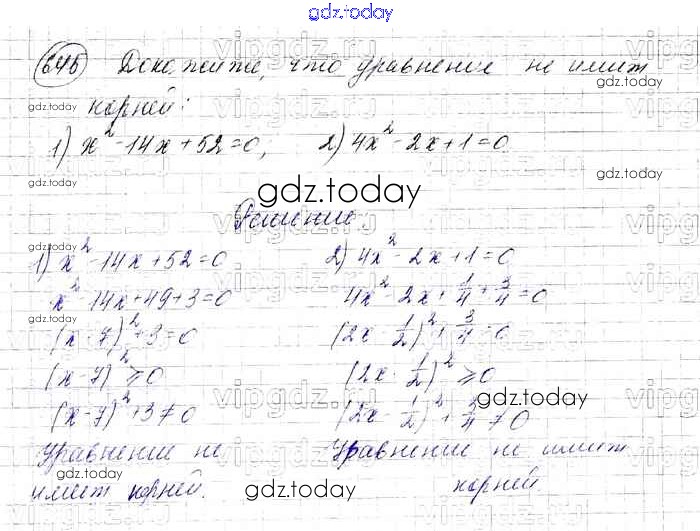 gdz.today
645 Докажите, что уравнение не имеет
корней:
1) x² - 14x + 52 = 0; 2) 4x² - 2x + 1 = 0
Решение.
1) x² - 14x + 52 = 0
x² - 14x + 49 + 3 = 0
(x - 7)² + 3 = 0
(x - 7)² ⩾ 0
(x - 7)² + 3 ≠ 0
Уравнение не
имеет корней.
2) 4x² - 2x + 1 = 0
4x² - 2x + 1/4 + 3/4 = 0
(2x - 1/2)² + 3/4 = 0
(2x - 1/2)² ⩾ 0
(2x - 1/2)² + 3/4 ≠ 0
Уравнение не имеет
корней
gdz.today
gdz.today
gdz.today
gdz.today
gdz.today
gdz.today
gdz.today
gdz.today
gdz.today
vipgdz.ru
vipgdz.ru
vipgdz.ru
vipgdz.ru